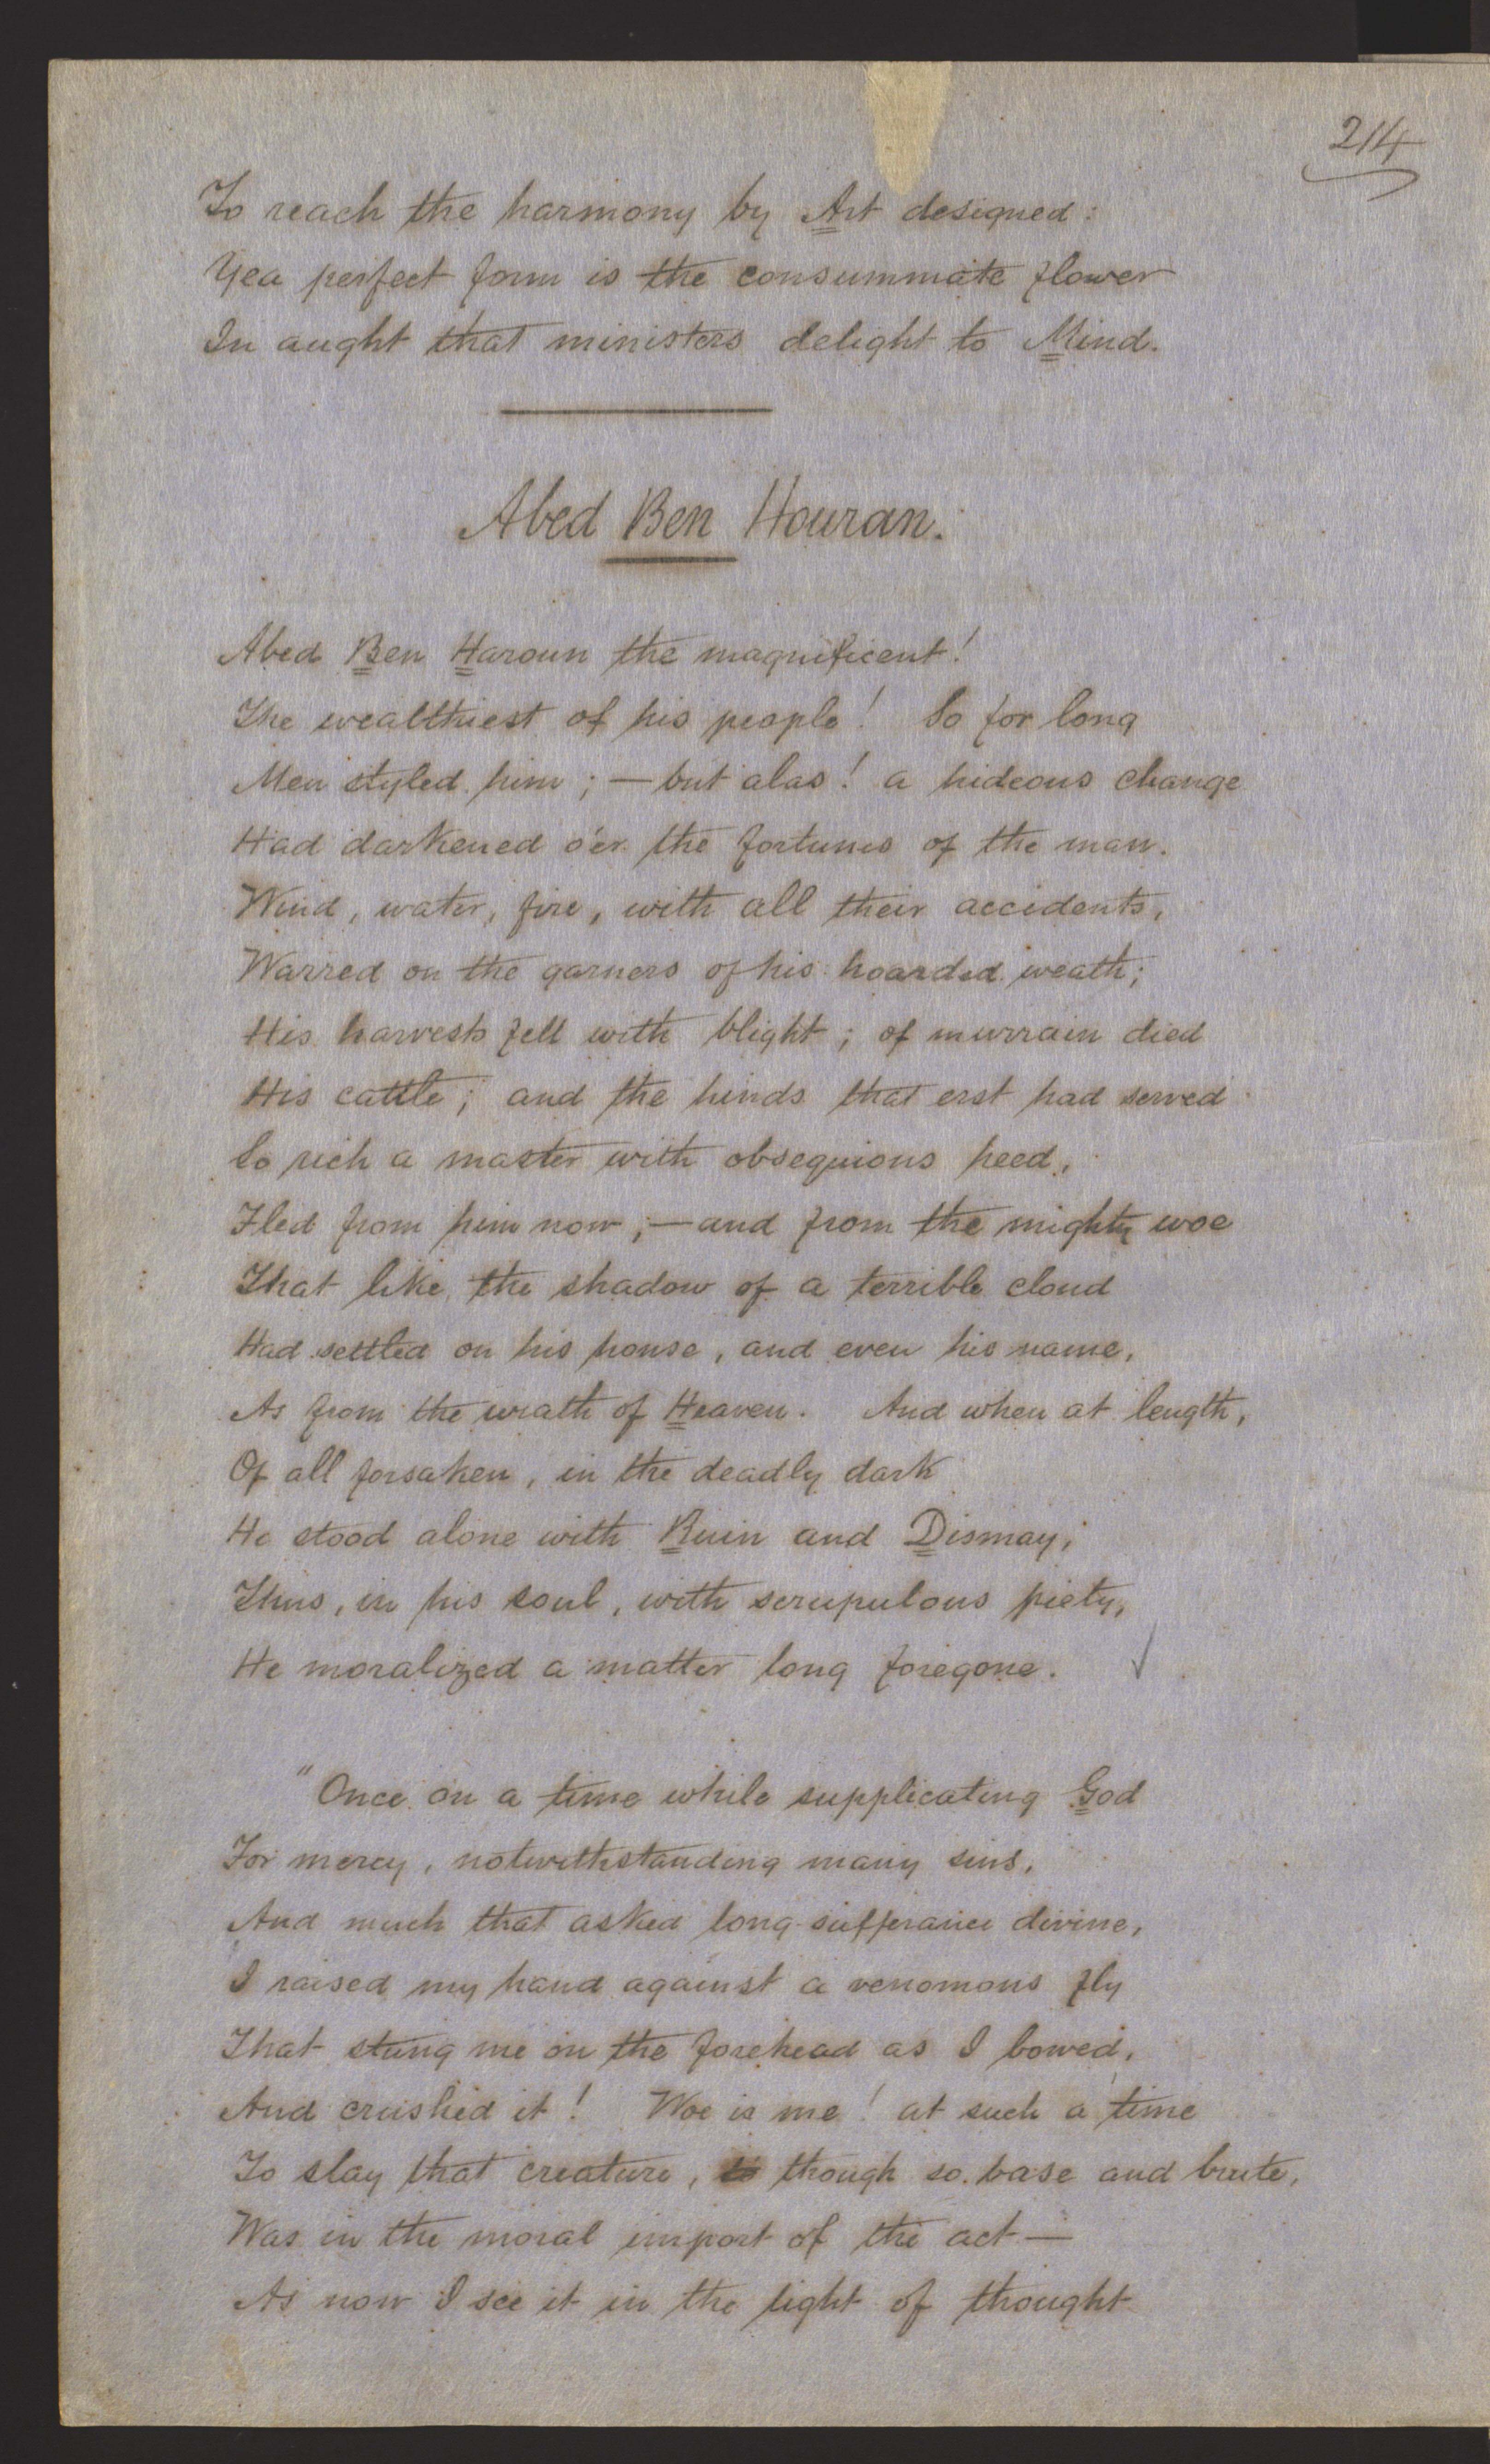 214
To reach the harmony by Art designed:
Yea perfect form is the consummate flower
In aught that ministers delight to Mind.
Abed Ben Houran.
Abed Ben Haroun the magnificent!
The wealthiest of his people! So for long
Men styled him; — but alas! a hideous change
Had darkened o'er the fortunes of the man.
Wind, water, fire, with all their accidents,
Warred on the garners of his hoarded weath;
His harvests fell with blight; of murrain died
His cattle; and the hinds that erst had served
So rich a master with obsequious heed,
Fled from him now; — and from the mighty woe
That like the shadow of a terrible cloud
Had settled on his house, and even his name,
As from the wrath of Heaven. And when at length,
Of all forsaken, in the deadly dark
He stood alone with Ruin and Dismay,
Thus, in his soul, with scrupulous piety,
He moralized a matter long foregone. ✓
"Once on a time while supplicating God
For mercy, notwithstanding many sins,
And much that asked long-sufferance divine,
I raised my hand against a venomous fly
That stung me on the forehead as I bowed,
And crushed it! Woe is me! at such a time
To slay that creature, though so base and brute,
Was in the moral import of the act —
As now I see it in the light of thought